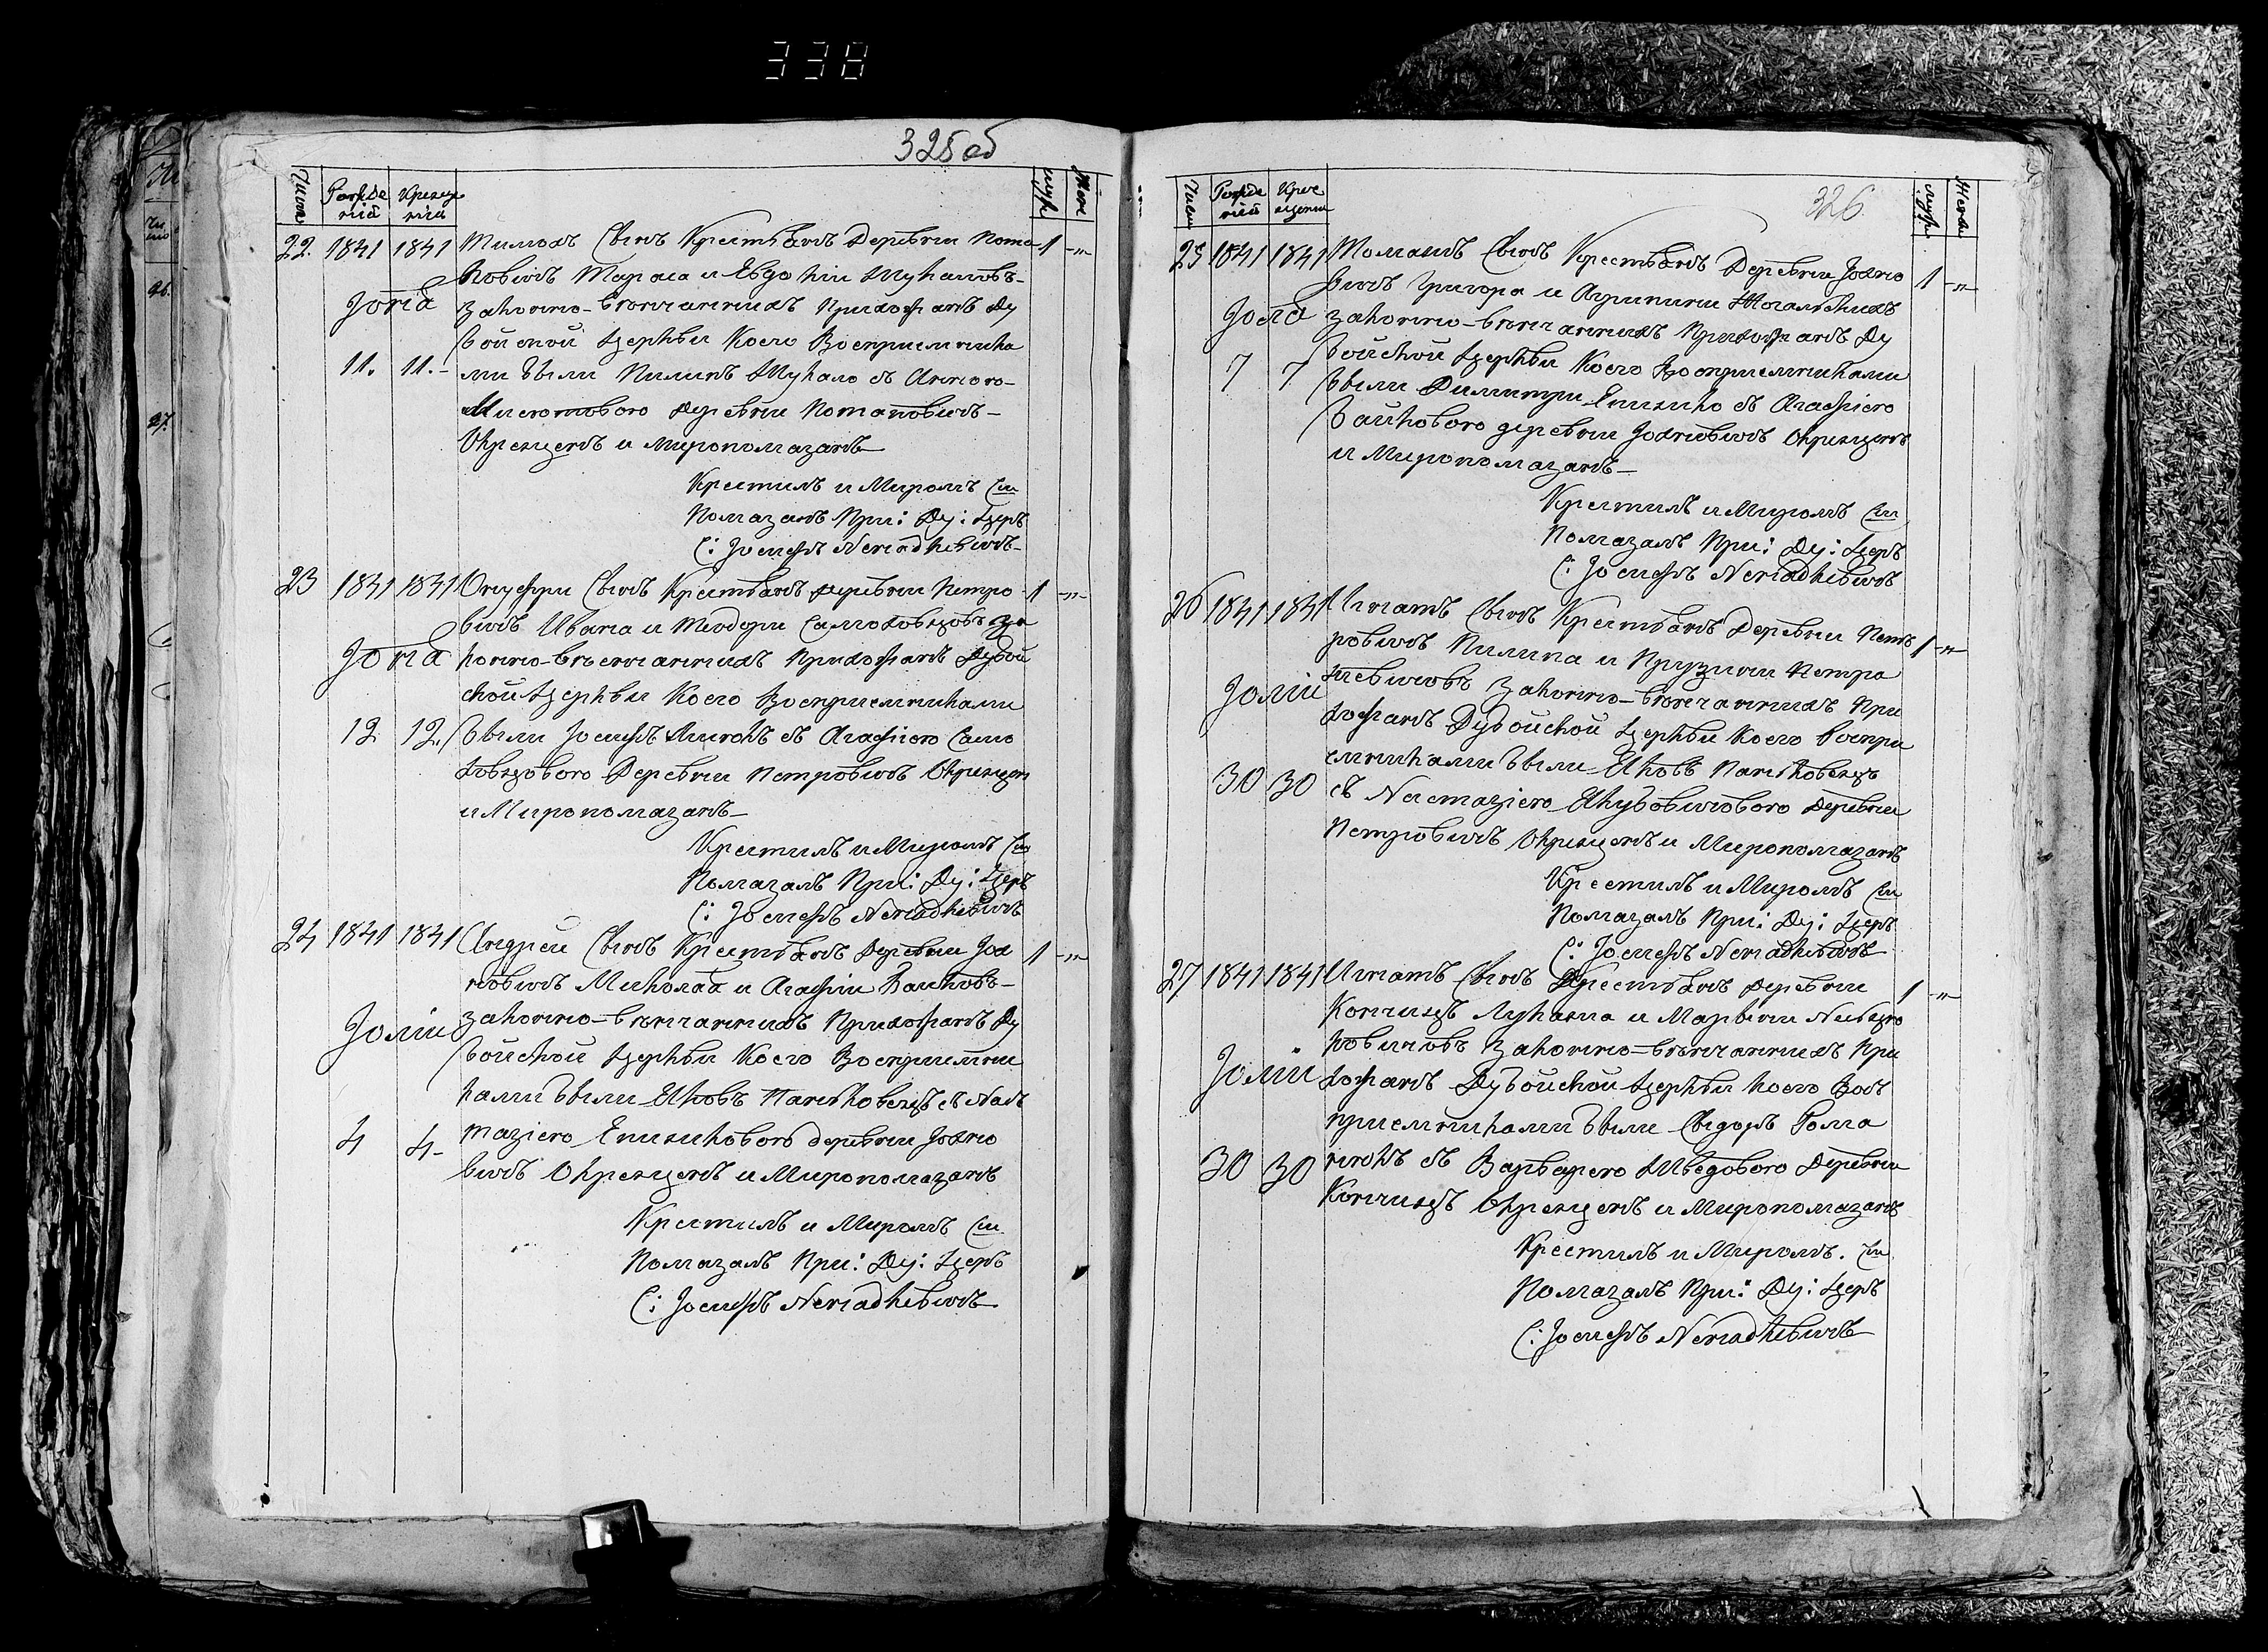 338
325 об
Число Рожде ния Креще ния муж жен
22. 1841 1841 Тимохъ Сынъ Крестьянъ Деревни Пота 1 -„-
повичъ Тараса и Евдокiи Шукаловъ-
Iюня законно-вѣнчанныхъ Прихожанъ Ду
бойской Церкви Коего Воспрiемника
11. 11.- ми были Пилипъ Шукало съ Анною-
деревни Потаповичъ-
Окрещенъ и миропомазанъ-
Крестилъ и Миромъ Св
Помазалъ При: Ду: Церк
С: Iосифъ Ненадкевичъ-
23 1841 1841 Онуфри Сынъ Крестьянъ деревни Петро 1 -„-
вичъ Ивана и Теодоры Самоховцовъ за
Iюня конно-вѣнчанныхъ Прихожанъ Дубой
ской Церкви Коего Воспрiемниками
12 12. были Iосифъ съ Агафiею Само
ховцовою Деревни Петровичъ Окрещен
и Миропомазанъ-
Крестилъ и Миромъ Св
Помазалъ При: Ду: Церк
С: Iосифъ Ненадкевичъ
24 1841 1841 Андрей Сынъ Крестьянъ Деревни Iох 1 -„-
новичъ Миколая и Агафiи Байковъ-
Iюлiи законно-вѣнчанныхъ Прихожанъ Ду
бойской Церкви Коего Воспрiемни
ками были Яковъ Панковецъ съ Нас
4 4- тазiею Епишковою деревни Iохно
вичъ Окрещенъ и Миропомазанъ
Крестилъ и Миромъ Св
Помазалъ При: Ду: Церк
С: Iосифъ Ненадкевичъ
326
Число Рожде ния Кре щения муже Женс
25 1841 1841 Томашъ Сынъ Крестьянъ Деревни Iохно 1 -„-
вичъ Григора и Агрипины
Iюля законно-вѣнчанныхъ Прихожанъ Ду
бойской Церкви Коего Воспрiемниками
7 7 были Димитри Епишко съ Агафiею
Байковою деревни Iохновичъ Окрещенъ
и Миропомазанъ-
Крестилъ и Миромъ Св
Помазалъ При: Ду: Церк
С: Iосифъ Ненадкевичъ
26 1841 1841 Игнатъ Сынъ Крестьянъ Деревни Пет 1 -„-
ровичъ Пилипа и Прузыни Петра
шевичовъ Законно-вѣнчанныхъ При
Iюлiи хожанъ Дубойской Церкви Коего воспри
емниками были Яковъ Панковецъ
30 30 съ Настазiею Якубовичовою Деревни
Петровичъ Окрещенъ и Миропомазанъ
Крестилъ и Миромъ Св
Помазалъ При: Ду: Церк
С: Iосифъ Ненадкевичъ
27 1841 1841 Игнатъ Сынъ Крестьянъ Деревни 1 -„-
Кончицъ Лукаша и Марыни
ковичовъ Законно-вѣнчанныхъ При
Iюлiи хожанъ Дубойской Церкви Коего Вос
прiемниками были Сыдоръ Рома
30 30 нюкъ съ Варварою Шведовою Деревни
Кончицъ Окрещенъ и Миропомазанъ
Крестилъ и Миромъ. Св
Помазалъ При: Ду: Церк
С: Iосифъ Ненадкевичъ